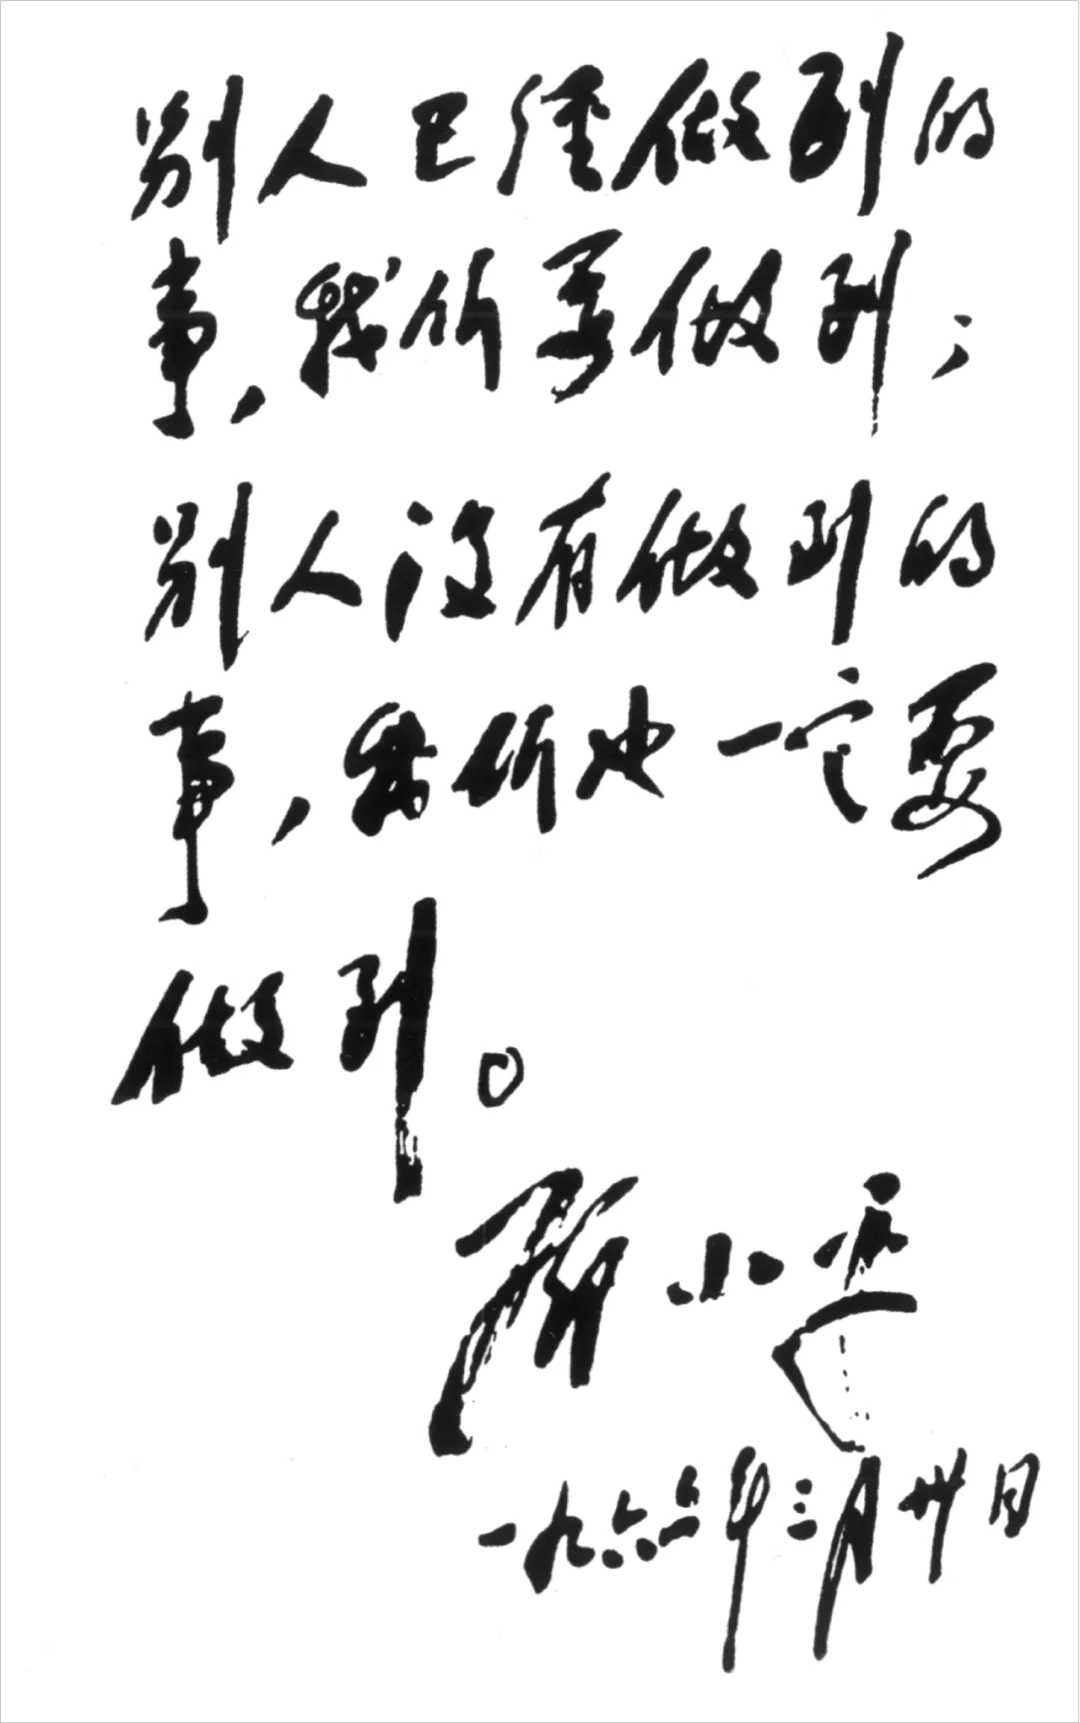 别人已經做到的
事,我们要做到;
别人没有做到的
事,我们也一定要
做到。
鄧小平
一九六六年三月卅日